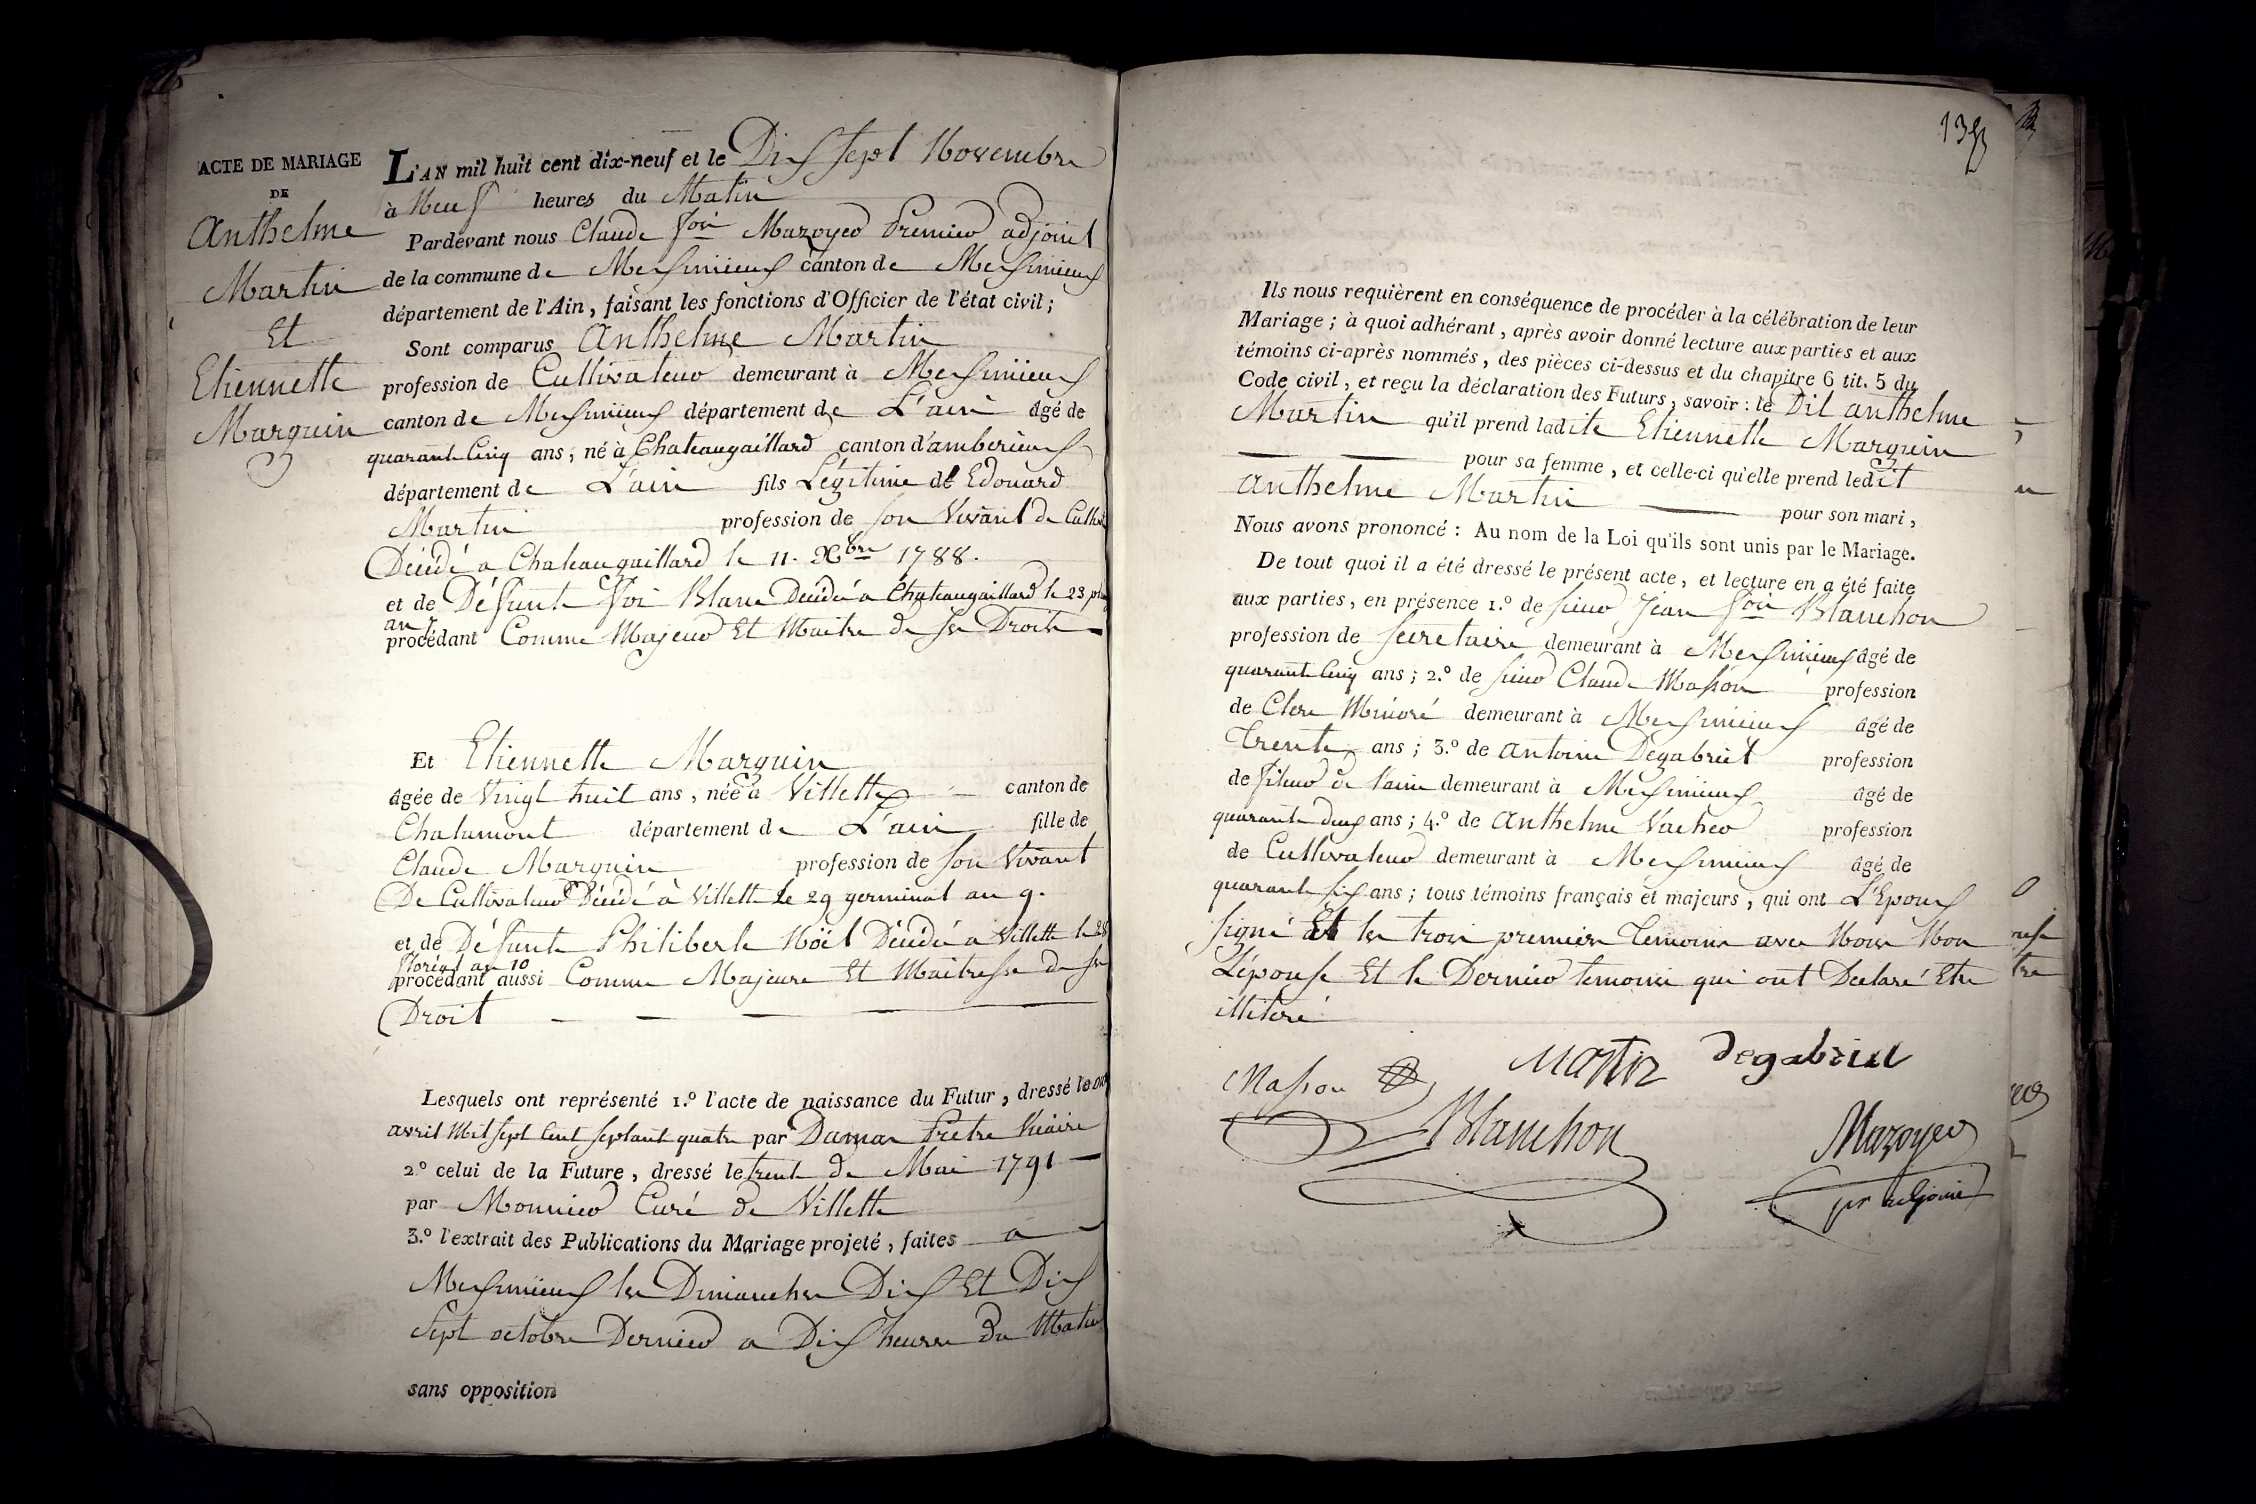 ACTE DE MARIAGE
DE
Anthelme
Martin
Et
Etiennette
Marguin
L'AN mil huit cent dix-neuf et le Dix sept Novembre
à Neuf heures du Matin
Pardevant nous Claude Fois Mazoyer Premier adjoint
de la commune de Meximieux canton de Meximieux
département de l'Ain, faisant les fonctions d'Officier de l'état civil;
Sont comparus Anthelme Martin
profession de Cultivateur demeurant à Meximieux
canton de Meximieux département de L'ain âgé de
quarante Cinq ans; né à Chateaugaillard canton d'amberieux
département de L'ain fils Légitime de Edouard
Martin profession de son Vivant de Culti
Décédé a Chateaugaillard le 11. Xbre 1788.
et de Défunte Foise Blanc Décédée a Chateaugaillard le 23
an 7
procédant Comme Majeur Et Maitre de ses Droits
Et Etiennette Marguin
âgée de Vingt huit ans, née à Villette canton de
Chalamont département de L'ain fille de
Claude Marguin profession de son Vivant
De Cultivateur Décédé à Villette Le 29 germinal an 9.
et de Défunte Philiberte Noël Décédée a Villette le 28
floréal an 10
procédant aussi Comme Majeure Et Maitresse de ses
Droit
Lesquels ont représenté 1.º l'acte de naissance du Futur, dressé le
avril Mil sept Cent septante quatre par Damas Prêtre Vicaire
2.º celui de la Future, dressé le trente de Mai 1791
par Monnier Curé de Villette
3.º l'extrait des Publications du Mariage projeté, faites a
Meximieux les Dimanches Dix Et Dix
Sept octobre Dernier a Dix heures du Matin
sans opposition
Ils nous requièrent en conséquence de procéder à la célébration de leur
Mariage; à quoi adhérant, après avoir donné lecture aux parties et aux
témoins ci-après nommés, des pièces ci-dessus et du chapitre 6 tit. 5 du
Code civil, et reçu la déclaration des Futurs, savoir: le Dit anthelme
Martin qu'il prend ladite Etiennette Marguin
pour sa femme, et celle-ci qu'elle prend ledit
Anthelme Martin pour son mari,
Nous avons prononcé: Au nom de la Loi qu'ils sont unis par le Mariage.
De tout quoi il a été dressé le présent acte, et lecture en a été faite
aux parties, en présence 1.º de sieur Jean Fois Blanchon
profession de secretaire demeurant à Meximieux âgé de
quarante Cinq ans; 2.º de sieur Claude Masson profession
de Clerc Minoré demeurant à Meximieux âgé de
Trente ans; 3.º de Antoine Degabriel profession
de fileur de laine demeurant à Meximieux âgé de
quarante deux ans; 4.º de Anthelme Vacher profession
de Cultivateur demeurant à Meximieux âgé de
quarante six ans; tous témoins français et majeurs, qui ont L'Epoux
signé Et les trois premiers Temoins avec Nous Non
L'épouse Et le Dernier temoins qui ont Déclaré Etre
illiteré
Masson
Martin
degabriel
Blanchon
Mazoyer
per adjoint